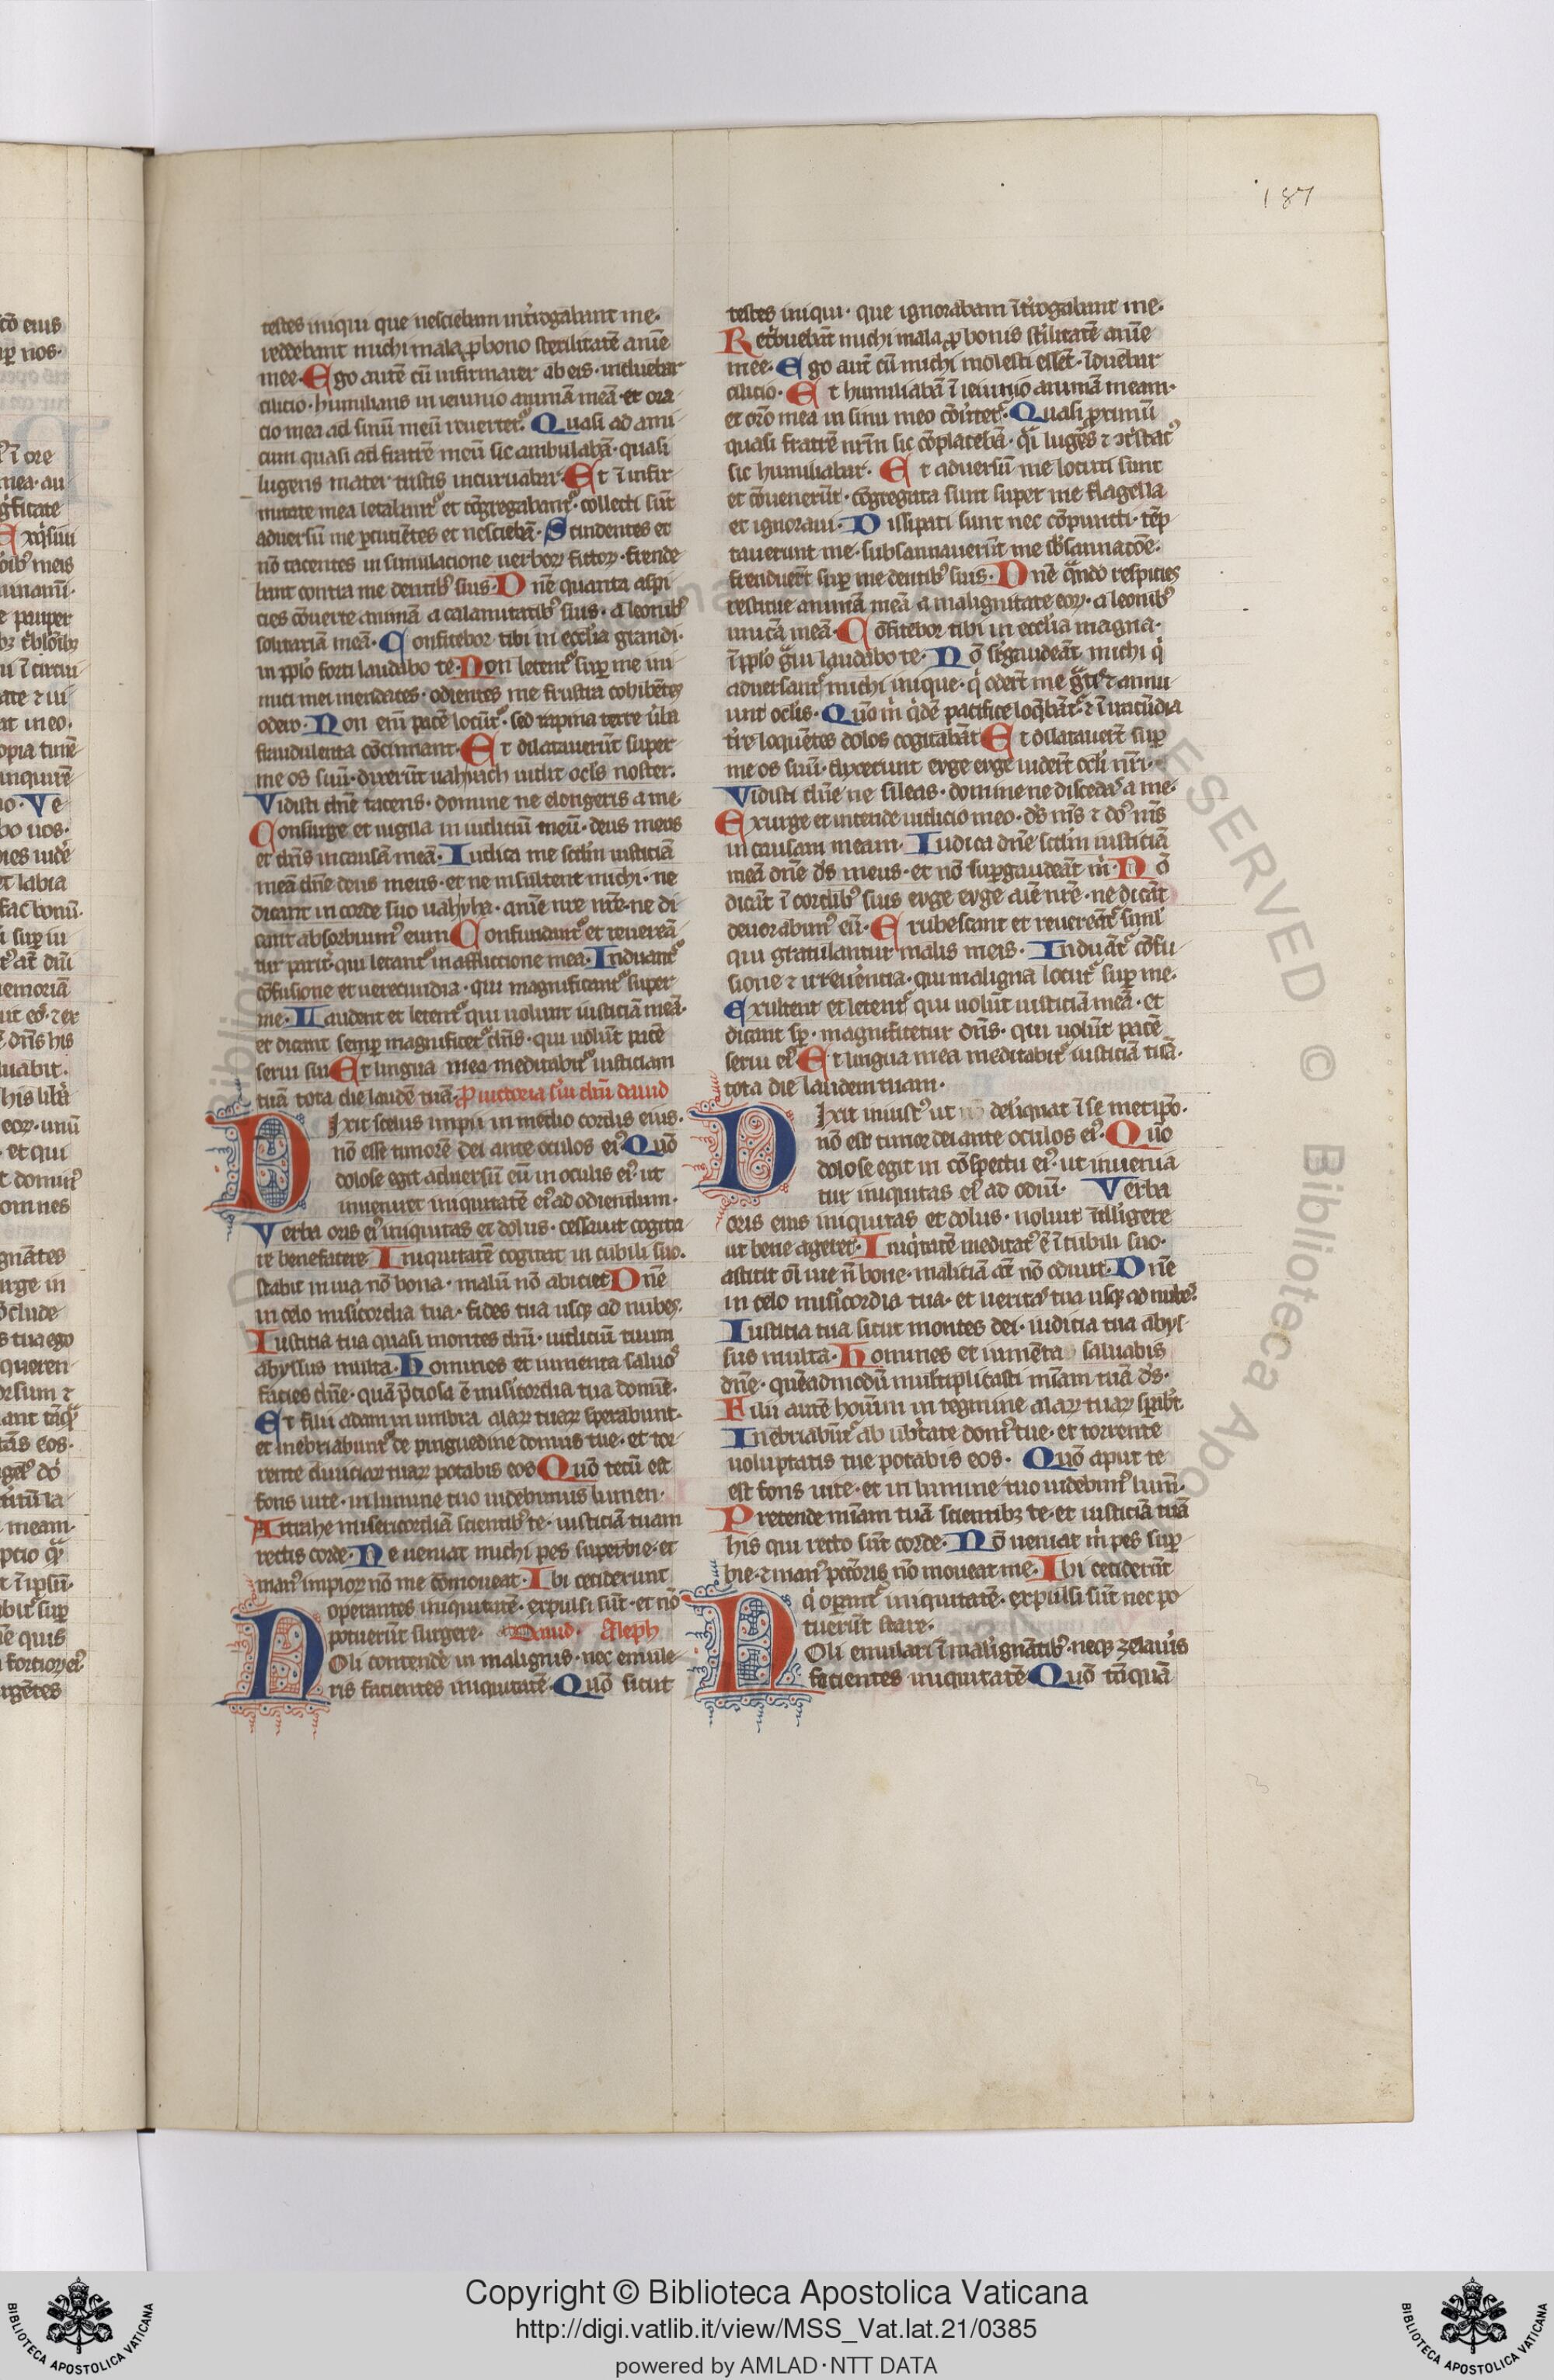 187
testes iniqui que nesciebam int'rogabant me·
reddebant michi mala ꝓ bono sterilitatē anīe
mee· Ego autē cū infirmarer ab eis· induebar
cilicio· humilians in ieiunio animā meā· et ora
cio mea ad sinū meū reuertet᷑. Quasi ad ami
cum quasi ad fratrē meū sic ambulabā· quasi
lugens mater tristis incuruabar· Et ī infir
mitate mea letabant᷑ et cōgregabant᷑· collecti sūt
aduersū me ꝑcutiētes et nesciebā· Scindentes et
nō tacentes in simulacione uerboꝝ fictoꝝ· frende
bant contra me dentib᷒ suis· Dnē quanta aspi
cies cōuerte animā a calamitatib᷒ suis· a leonib᷒
solitariā meā· Confitebor tibi in eccl'ia grandi·
in pplo forti laudabo te· Non letent᷑ suꝑ me ini
mici mei mendaces· odientes me frustra cohibētes
odero· Non enī pacē locūt᷑· sed rapina terre ū'ba
fraudulenta cōcinnant· Et dilatauerūt super
me os suū· dixerūt uah uach uidit ocl's noster.
Vidisti dnē tacens· domine ne elongeris a me·
Consurge et uigila in iudiciū meū· deus meus
et dn̄s in causā meā· Iudica me scd'm iusticiā
meā dnē deus meus· et ne insultent michi· ne
dicant in corde suo uah uha· anīe nre nrē· ne di
cant absorbuim᷒ eum Confundant᷑ et reuereā
tur parit'· qui letant᷑ in affliccione mea· Induant᷑
cōfusione et uerecundia· qui magnificant᷑ super
me· Laudent et letent᷑ qui uolunt iusticiā meā·
et dicant semꝑ magnificet᷑ dn̄s· qui uolūt pacē
serui sui Et lingua mea meditabit᷑ iusticiam
tuā tota die laudē tuā· Ꝓ uictoria s'ui dn̄i dauid
Dixit scelus impii in medio cordis eius·
nō esse timorē dei ante oculos ei᷒ Quō
dolose egit aduersū eū in oculis ei᷒ ut
inueniret iniquitatē ei᷒ ad odiendum·
Verba oris ei᷒ iniquitas et dolus· cessauit cogita
re benefacere· Iniquitatē cogitat in cubili suo·
stabit in uia nō bona· malū nō abiciet Dnē
in celo misicordia tua· fides tua usqꝫ ad nubes·
Iusticia tua quasi montes dn̄i· iudiciū tuum
abyssus multa· Homines et iumenta saluos
facies dnē· quā p̄ciosa ē misicordia tua domīe·
Et filii adam in umbra alaꝝ tuaꝝ sperabunt·
et inebriabunt᷑ de pinguedine domus tue· et tor
rente diuiciaꝝ tuaꝝ potabis eos Quō tecū est
fons uite· in lumine tuo uidebimus lumen·
Attrahe misericordiā scientib᷒ te· iusticiā tuam
rectis corde· Ne ueniat michi pes superbie· et
man᷒ impioꝝ nō me cōmoueat· Ibi ceciderunt
operantes iniquitatē· expulsi sūt· et nō
potuerūt surgere· Dauid· Aleph
Noli contende in malignis· nec emule
ris facientes iniquitatē· Quō sicut
testes iniqui· que ignorabam īt'rogabant me·
Retribuebāt michi mala ꝓ bonis st'ilitatē anīe
mee· Ego aut̄ cū michi molesti essēt· īduebar
cilicio· Et humiliabā ī ieiunio animam meam·
et or̄o mea in sinu meo cōu'tet᷑· Quasi ꝓximū
quasi fratrē nr̄m sic cōplacebā· q̄i lugēs ⁊ ꝯt'stat᷒
sic humiliabar· Et aduersū me locuti sunt
et cōuenerūt· cōgregata sunt super me flagella
et ignoraui· Dissipati sunt nec cōpuncti· tēp
tauerunt me· subsannauerūt me sb'sannacōe·
frenduert̄ suꝑ me dentib᷒ suis· Dnē qn̄do respicies
restitue animā meā a malignitate eoꝝ· a leonib᷒
unicā meā· Cōfitebor tibi in eccl'ia magna·
ī pplo gui laudabo te· Nō sꝑgaudeāt michi q'
aduersant᷑ michi inique· q' odert̄ me gͣtis ⁊ annu
unt oclis· Quō m' q'dē pacifice loq̄bāt᷑ ⁊ ī iracūdia
t're loquētes dolos cogitabāt Et dilatauert̄ suꝑ
me os suū· dixerunt euge euge uidert̄ ocl'i nr̄i·
Vidisti dn̄e ne sileas· domine ne discedas a me·
Exurge et intende iudicio meo· ds' ms' ⁊ dn̄s ms'
in causam meam· Iudica dnē scd'm iusticiā
meā dnē ds' meus· et nō suꝑgaudeāt m'· Nō
dicāt ī cordib᷒ suis euge euge aīe nrē· ne dicāt
deuorabim᷒ eū· Erubescant et reuereāt᷑ simł
qui gratulantur malis meis· Induāt᷑ cōfu
sione ⁊ reuerencia· qui maligna locunt᷑ suꝑ me·
Exultent et letent᷑ qui uolūt iusticiā meā· et
dicant sꝑ· magnificetur dn̄s· qui uolūt pacē
serui ei᷒ Et lingua mea meditabit᷑ iusticiā tuā·
tota die laudem tuam·
Dixit iniust᷒ ut deliquat ī se metip̄o·
nō est timor dei ante oculos ei᷒· Quō
dolose egit in cōspectu ei᷒· ut inuenia
tur iniquitas ei᷒ ad odiū· Verba
oris eius iniquitas et dolus· noluit ītelligere
ut bene ageret· Iniq'tatē meditat᷒ ē ī cubili suo·
astitit oī uie n̄ bone· maliciā at̄ nō odiuit· Dnē
in celo misicordia tua· et ueritas tua usqꝫ ad nubes
Iusticia tua sicut montes dei· iudicia tua abys
sus multa· Homines et iumēta saluabis
dnē· quēadmodū multiplicasti mīam tuā ds'·
Filii autē hominū in tegmine alaꝝ tuaꝝ sꝑabūt·
Inebriabūt᷑ ab ub'tate dom᷒ tue· et torrente
uoluptatis tue potabis eos· Quō aput te
est fons uite· et in lumine tuo uidebim᷒ lumē·
Pretende mīam tuā scientibꝫ te· et iusticiā tuā
his qui recto sūt corde· Nō ueniat m' pes suꝑ
bie· ⁊ man᷒ pcc̄oris nō moueat me· Ibi ceciderūt
q' oꝑant᷑ iniquitatē· expulsi sūt nec po
tuerūt stare·
Noli emulari ī malignātib᷒· neqꝫ zelauis
facientes iniquitatē Quō tāquā
Copyright © Biblioteca Apostolica Vaticana
http://digi.vatlib.it/view/MSS_Vat.lat.21/0385
powered by AMLAD·NTT DATA
BIBLIOTECA APOSTOLICA VATICANA
BIBLIOTECA APOSTOLICA VATICANA